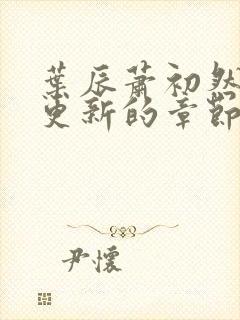 葉辰蕭初然
更新的章節
尹懷